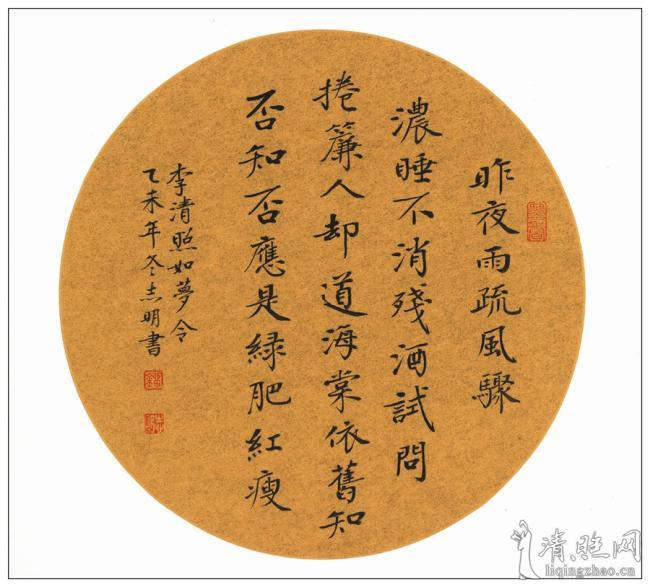 昨夜雨疏風驟
濃睡不消殘酒試問
捲簾人却道海棠依舊知
否知否應是綠肥紅瘦
李清照如夢令
乙未年冬志明書
清照网
liqingzhao.cn